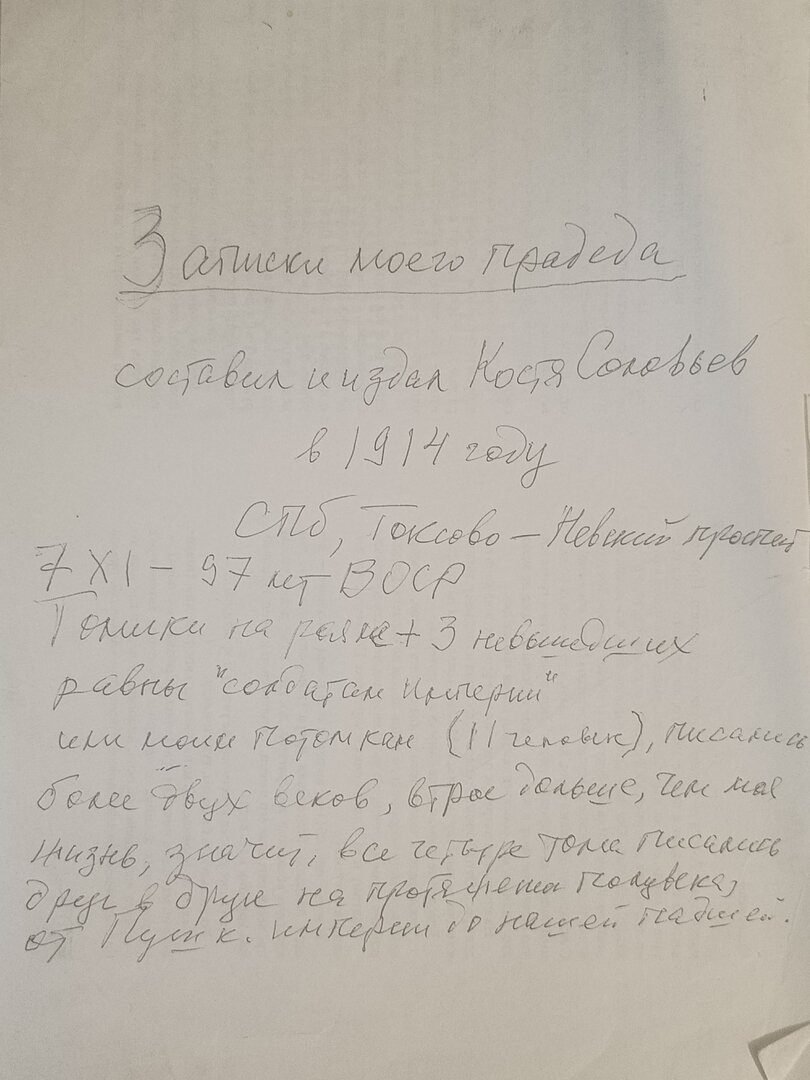 Записки моего прадеда
составил и издал Костя Соловьев
в 1914 году
СПб, Токсово – Невский проспект
7 XI – 97 лет ВОСР
Томики на рояле + 3 невышедших
равны "солдатам Империи"
или моим потомкам (11 человек), писались
более двух веков, втрое дольше, чем моя
жизнь, значит, все четыре тома писались
друг в друге на протяжении полувека,
от Пушк. империи до нашей падшей.